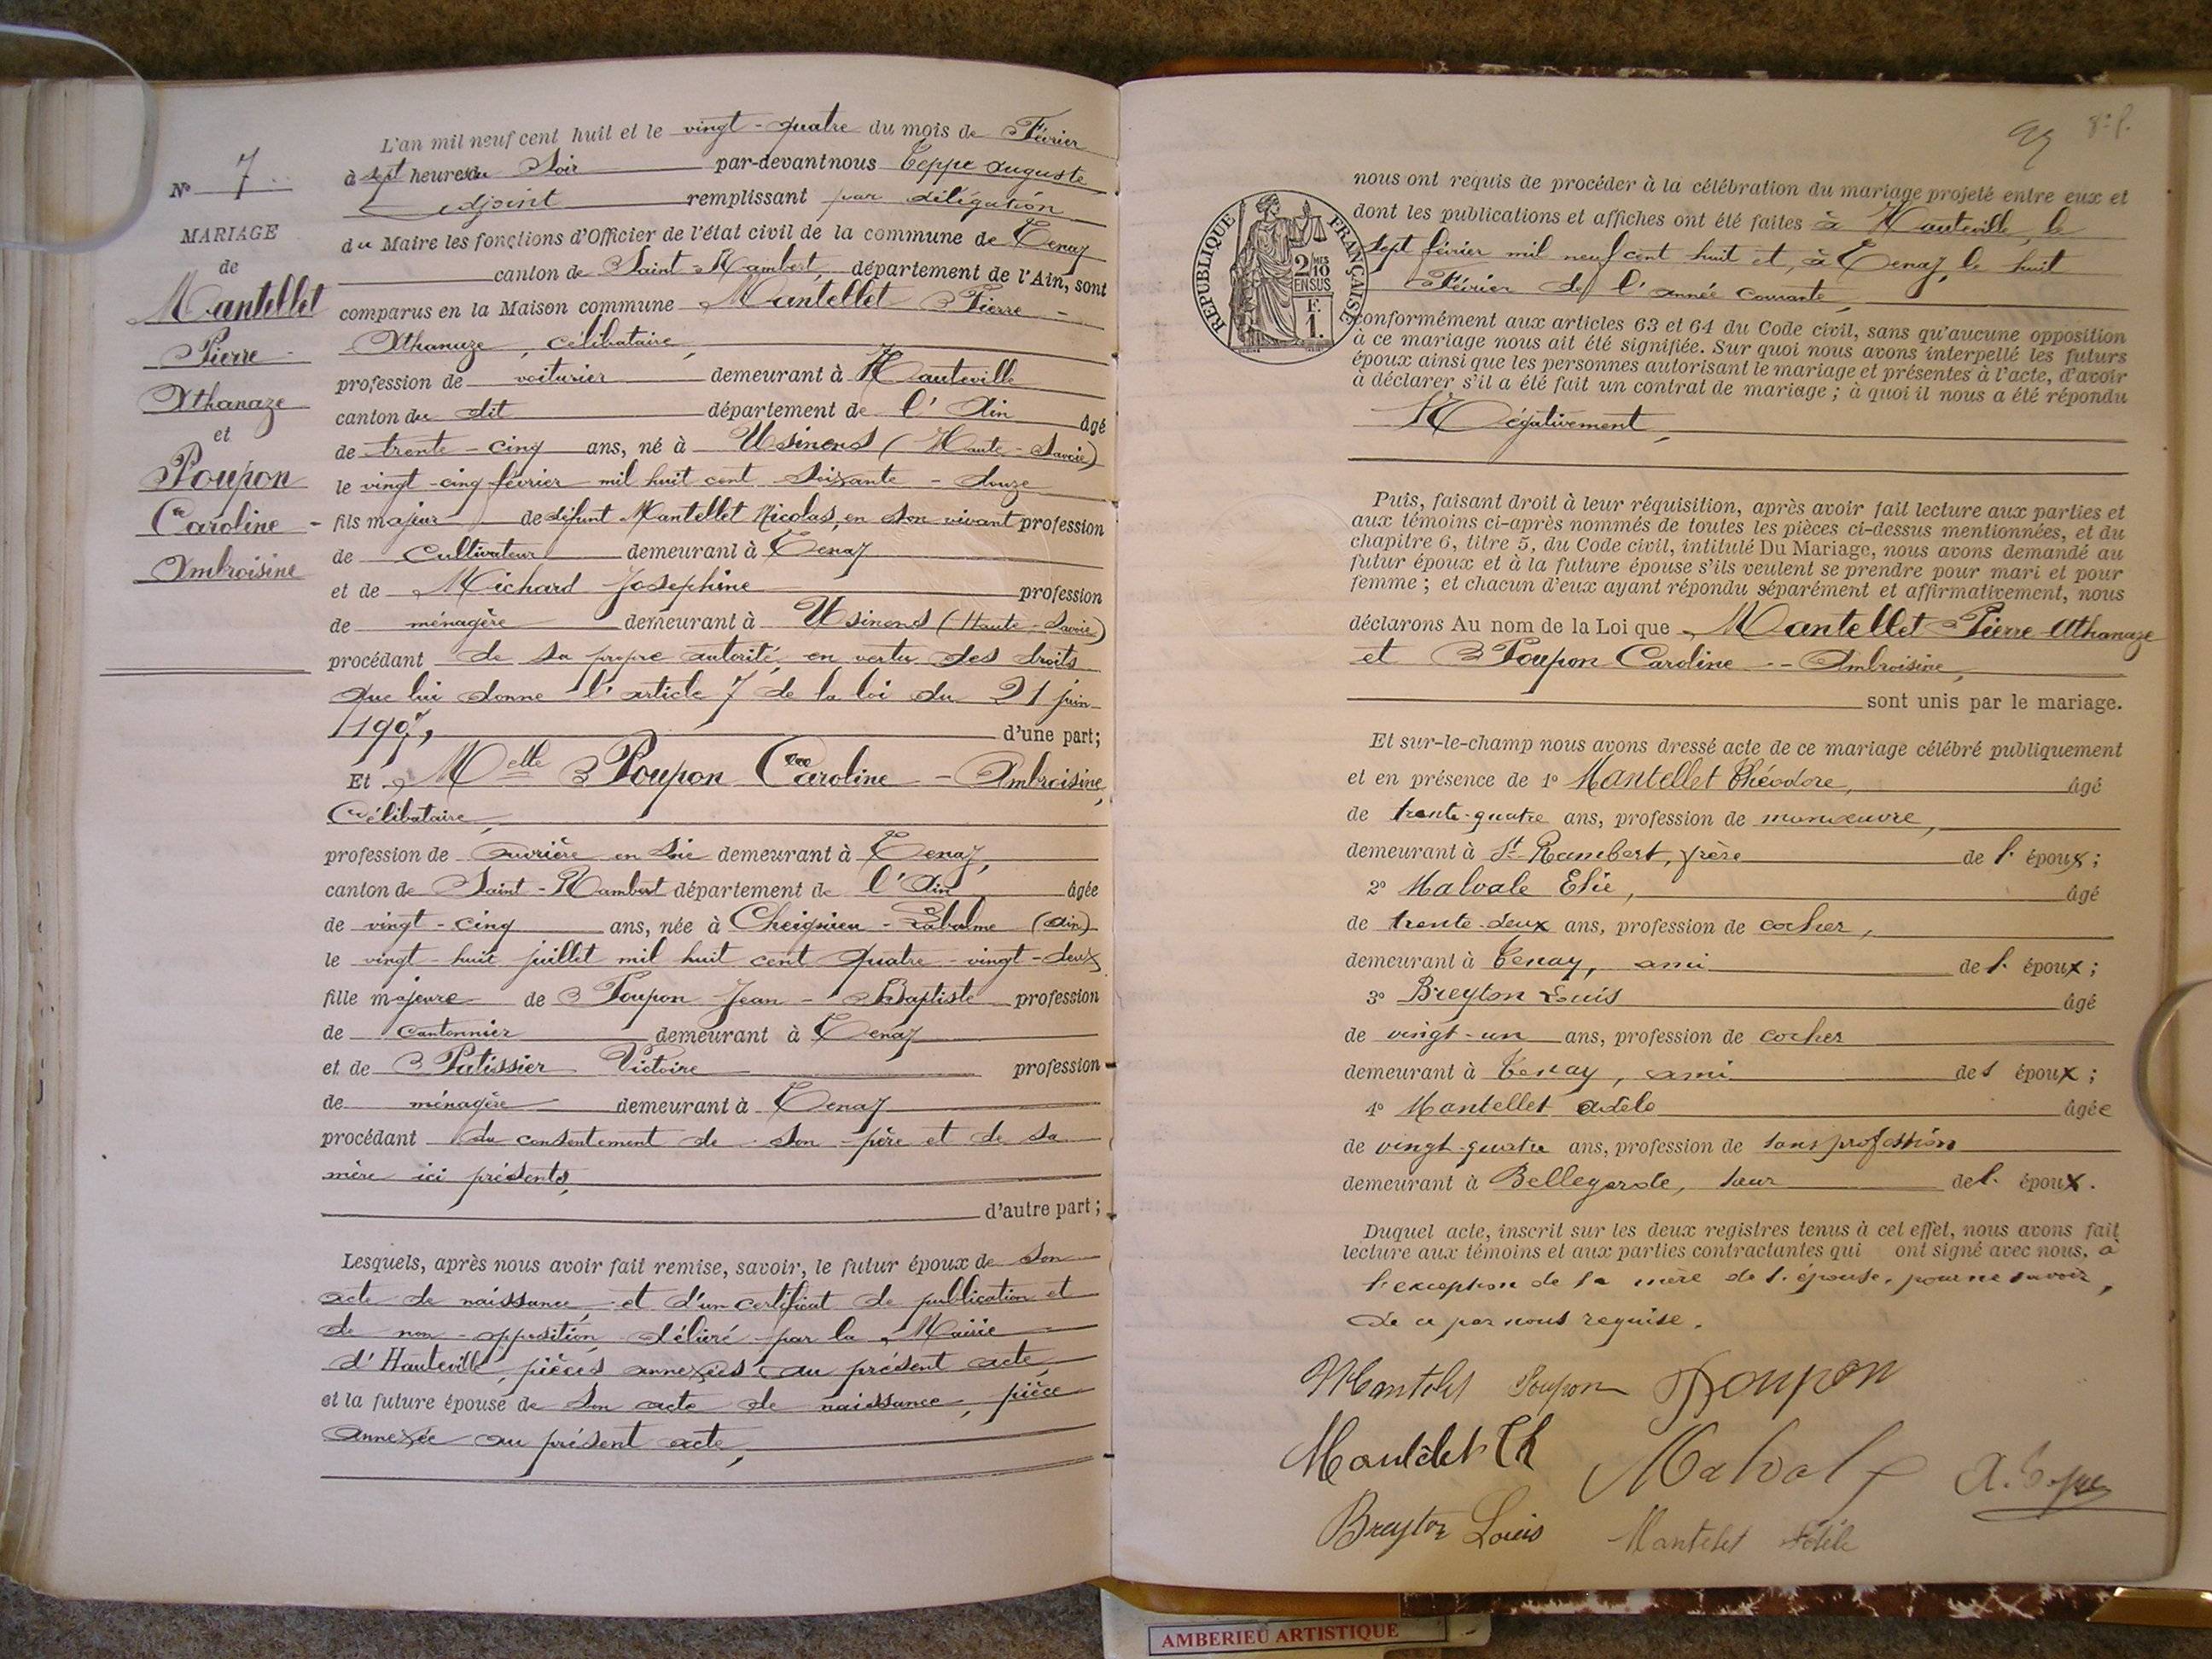 N° 7
MARIAGE
de
Mantellet
Pierre
Athanaze
et
Poupon
Caroline -
Ambroisine
L'an mil neuf cent huit et le vingt-quatre du mois de Février
à sept heures du Soir par-devant nous Teppe Auguste
Adjoint remplissant par délégation
du Maire les fonctions d'Officier de l'état civil de la commune de Tenay
canton de Saint-Rambert, département de l'Ain, sont
comparus en la Maison commune Mantellet Pierre -
Athanaze, célibataire,
profession de voiturier demeurant à Hauteville
canton du dit département de l'Ain âgé
de trente-cinq ans, né à Usinens (Haute-Savoie)
le vingt-cinq février mil huit cent soixante-douze
fils majeur de défunt Mantellet Nicolas, en son vivant profession
de Cultivateur demeurant à Tenay
et de Michard Josephine profession
de ménagère demeurant à Usinens (Haute-Savoie)
procédant de sa propre autorité, en vertu des droits
que lui donne l'article 7 de la loi du 21 juin
1907, d'une part;
Et Melle Poupon Caroline - Ambroisine,
Célibataire,
profession de ouvrière en soie demeurant à Tenay,
canton de Saint-Rambert département de l'Ain âgée
de vingt-cinq ans, née à Cheignieu-Labalme (Ain)
le vingt-huit juillet mil huit cent quatre-vingt-deux
fille majeure de Poupon Jean-Baptiste profession
de cantonnier demeurant à Tenay
et de Patissier Victoire profession
de ménagère demeurant à Tenay
procédant du consentement de son père et de sa
mère ici présents,
d'autre part;
Lesquels, après nous avoir fait remise, savoir, le futur époux de son
acte de naissance, et d'un certificat de publication et
de non-opposition, délivré par la Mairie
d'Hauteville, pièces annexées au présent acte,
et la future épouse de son acte de naissance, pièce
annexée au présent acte,
8e f.
nous ont requis de procéder à la célébration du mariage projeté entre eux et
dont les publications et affiches ont été faites à Hauteville, le
sept février mil neuf cent huit et, à Tenay, le huit
Février de l'année courante,
RÉPUBLIQUE FRANÇAISE
2/10 MES
EN SUS
F.
1.
conformément aux articles 63 et 64 du Code civil, sans qu'aucune opposition
à ce mariage nous ait été signifiée. Sur quoi nous avons interpellé les futurs
époux ainsi que les personnes autorisant le mariage et présentes à l'acte, d'avoir
à déclarer s'il a été fait un contrat de mariage; à quoi il nous a été répondu
Négativement,
Puis, faisant droit à leur réquisition, après avoir fait lecture aux parties et
aux témoins ci-après nommés de toutes les pièces ci-dessus mentionnées, et du
chapitre 6, titre 5, du Code civil, intitulé Du Mariage, nous avons demandé au
futur époux et à la future épouse s'ils veulent se prendre pour mari et pour
femme; et chacun d'eux ayant répondu séparément et affirmativement, nous
déclarons Au nom de la Loi que Mantellet Pierre Athanaze
et Poupon Caroline - Ambroisine,
sont unis par le mariage.
Et sur-le-champ nous avons dressé acte de ce mariage célébré publiquement
et en présence de 1° Mantellet Théodore, âgé
de trente-quatre ans, profession de manœuvre,
demeurant à St Rambert, frère de l' époux;
2° Malvale Elie, âgé
de trente-deux ans, profession de cocher,
demeurant à Tenay, ami de l' époux;
3° Breyton Louis âgé
de vingt-un ans, profession de cocher
demeurant à Tenay, ami de l' époux;
4° Mantellet Adèle âgée
de vingt-quatre ans, profession de sans profession
demeurant à Bellegarde, sœur de l' époux.
Duquel acte, inscrit sur les deux registres tenus à cet effet, nous avons fait
lecture aux témoins et aux parties contractantes qui ont signé avec nous, à
l'exception de la mère de l'épouse, pour ne savoir,
de ce par nous requise.
Mantelet Poupon Poupon
Mantelet Th Malval A. Teppe
Breyton Louis Mantelet Adèle
AMBERIEU ARTISTIQUE